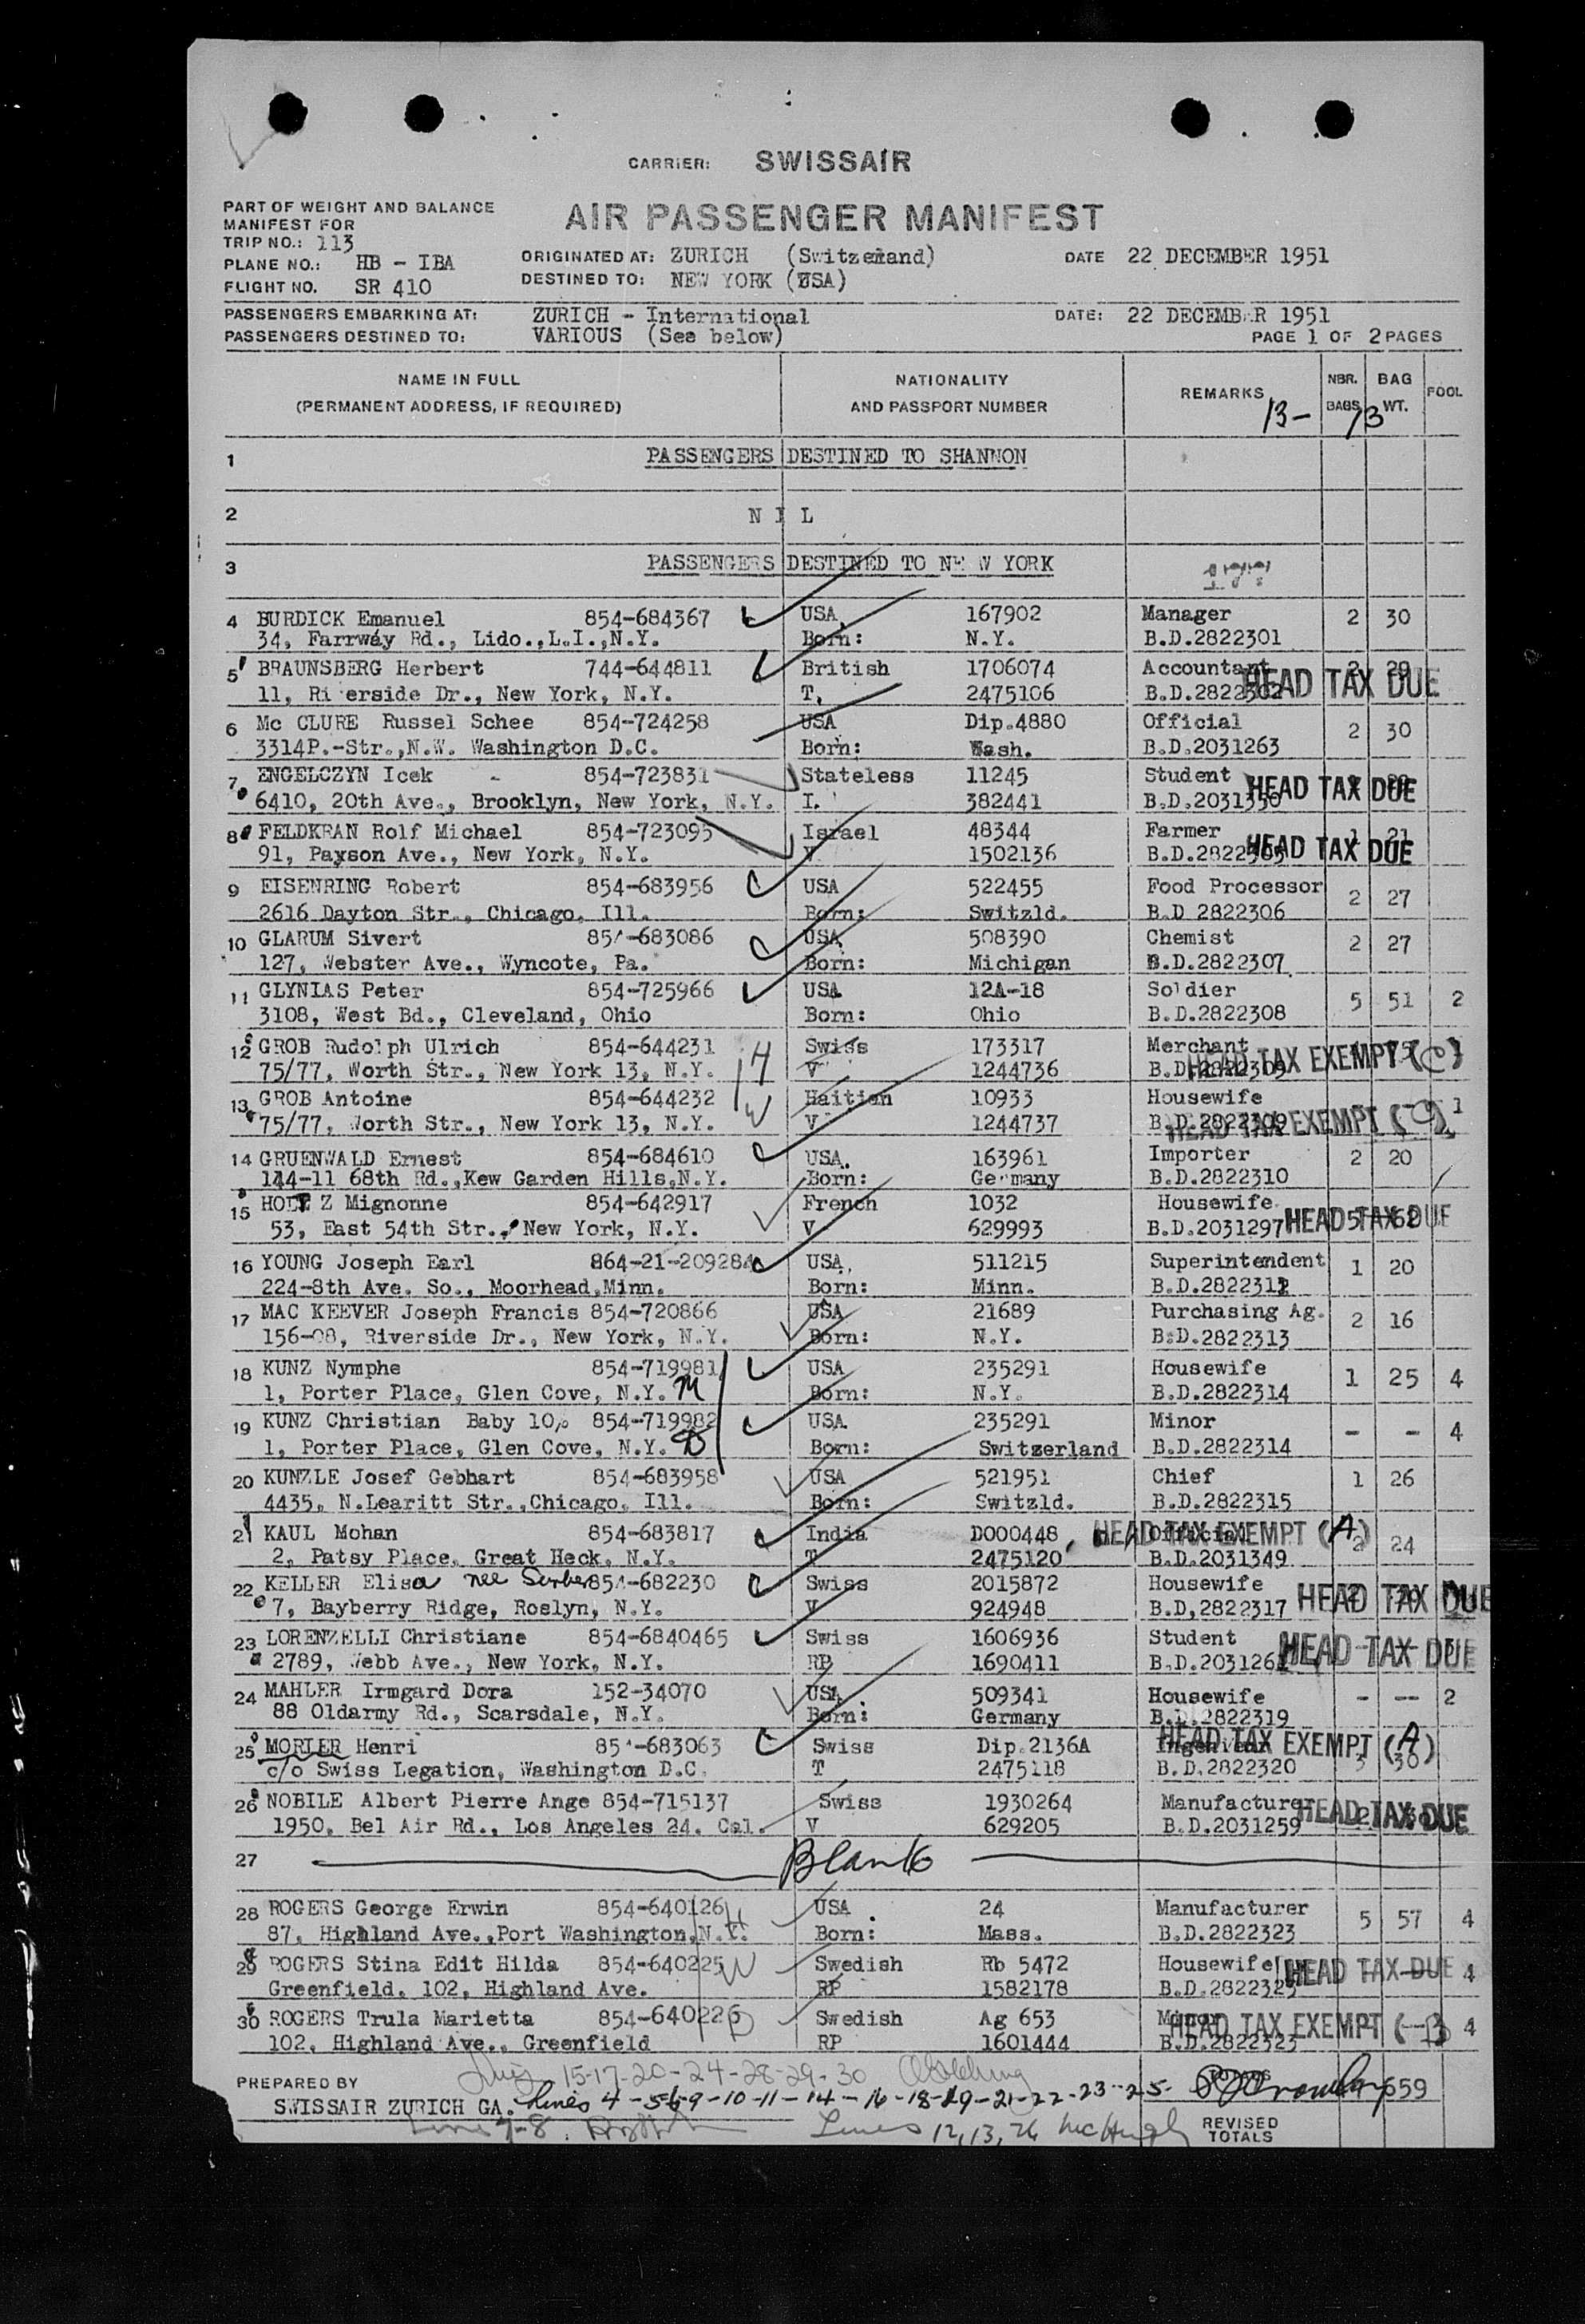 CARRIER: SWISSAIR
AIR PASSENGER MANIFEST
PART OF WEIGHT AND BALANCE
MANIFEST FOR
TRIP NO.: 113
PLANE NO.: HB - IBA
FLIGHT NO. SR 410
ORIGINATED AT: ZURICH (Switzerland) DATE 22 DECEMBER 1951
DESTINED TO: NEW YORK (USA)
PASSENGERS EMBARKING AT: ZURICH - International DATE: 22 DECEMBER 1951
PASSENGERS DESTINED TO: VARIOUS (See below) PAGE 1 OF 2 PAGES
NAME IN FULL NATIONALITY REMARKS NBR. BAG FOOL
(PERMANENT ADDRESS, IF REQUIRED) AND PASSPORT NUMBER 13- BAGS 13 WT.
1 PASSENGERS DESTINED TO SHANNON
2 N I L
3 PASSENGERS DESTINED TO NEW YORK
4 BURDICK Emanuel 854-684367 USA, 167902 Manager 2 30
34, Farrway Rd., Lido.,L.I.,N.Y. Born: N.Y. B.D.2822301
5 BRAUNSBERG Herbert 744-644811 British 1706074 Accountant 2 29
11, Riverside Dr., New York, N.Y. T, 2475106 B.D.2822302 HEAD TAX DUE
6 Mc CLURE Russel Schee 854-724258 USA Dip.4880 Official 2 30
3314P.-Str.,N.W. Washington D.C. Born: Wash. B.D.2031263
7 ENGELCZYN Icek - 854-723831 Stateless 11245 Student
6410, 20th Ave., Brooklyn, New York, N.Y. I. 382441 B.D.2031350 HEAD TAX DUE
8 FELDKRAN Rolf Michael 854-723095 Israel 48344 Farmer 1 21
91, Payson Ave., New York, N.Y. V 1502136 B.D.2822305 HEAD TAX DUE
9 EISENRING Robert 854-683956 USA 522455 Food Processor 2 27
2616 Dayton Str., Chicago, Ill. Born: Switzld. B.D 2822306
10 GLARUM Sivert 854-683086 USA 508390 Chemist 2 27
127, Webster Ave., Wyncote, Pa. Born: Michigan B.D.2822307
11 GLYNIAS Peter 854-725966 USA 12A-18 Soldier 5 51 2
3108, West Bd., Cleveland, Ohio Born: Ohio B.D.2822308
12 GROB Rudolph Ulrich 854-644231 H Swiss 173317 Merchant
75/77, Worth Str., New York 13, N.Y. V 1244736 B.D.2822309 HEAD TAX EXEMPT (C)
13 GROB Antoine 854-644232 W Haitian 10933 Housewife 1
75/77, Worth Str., New York 13, N.Y. V 1244737 B.D.2822309 HEAD TAX EXEMPT (C)
14 GRUENWALD Ernest 854-684610 USA. 163961 Importer 2 20
144-11 68th Rd.,Kew Garden Hills,N.Y. Born: Germany B.D.2822310
15 Mignonne 854-642917 French 1032 Housewife
53, East 54th Str., New York, N.Y. V 629993 B.D.2031297 HEAD TAX DUE
16 YOUNG Joseph Earl 864-21-209284 USA, 511215 Superintendent 1 20
224-8th Ave. So., Moorhead,Minn. Born: Minn. B.D.2822312
17 MAC KEEVER Joseph Francis 854-720866 USA 21689 Purchasing Ag. 2 16
156-08, Riverside Dr., New York, N.Y. Born: N.Y. B.D.2822313
18 KUNZ Nymphe 854-719981 USA 235291 Housewife 1 25 4
1, Porter Place, Glen Cove, N.Y. M Born: N.Y. B.D.2822314
19 KUNZ Christian Baby 854-719982 USA 235291 Minor - - 4
1, Porter Place, Glen Cove, N.Y. Born: Switzerland B.D.2822314
20 KUNZLE Josef Gebhart 854-683958 USA 521951 Chief 1 26
4435, N.Learitt Str.,Chicago, Ill. Born: Switzld. B.D.2822315
21 KAUL Mohan 854-683817 India D000448 Official HEAD TAX EXEMPT (A)
2, Patsy Place, Great Heck, N.Y. T 2475120 B.D.2031349 2 24
22 KELLER Elisa nee 854-682230 Swiss 2015872 Housewife
7, Bayberry Ridge, Roslyn, N.Y. V 924948 B.D,2822317 HEAD TAX DUE
23 LORENZELLI Christiane 854-6840465 Swiss 1606936 Student
2789, Webb Ave., New York, N.Y. RP 1690411 HEAD TAX DUE
24 MAHLER Irmgard Dora 152-34070 USA 509341 Housewife - -- 2
88 Oldarmy Rd., Scarsdale, N.Y. Born: Germany B.D.2822319
25 MORIER Henri 854-683063 Swiss Dip.2136A Ingenieur HEAD TAX EXEMPT (A)
c/o Swiss Legation, Washington D.C. T 2475118 B.D.2822320 3 30
26 NOBILE Albert Pierre Ange 854-715137 Swiss 1930264 Manufacturer
1950, Bel Air Rd., Los Angeles 24. Cal. V 629205 B.D.2031259 HEAD TAX DUE
27 Blank
28 ROGERS George Erwin 854-640126 H USA 24 Manufacturer 5 57 4
87, Highland Ave.,Port Washington,N.Y. Born: Mass. B.D.2822323
29 ROGERS Stina Edit Hilda 854-640225 W Swedish Rb 5472 Housewife HEAD TAX DUE 4
Greenfield, 102, Highland Ave. RP 1582178 B.D.2822323
30 ROGERS Trula Marietta 854-640226 D Swedish Ag 653 Minor HEAD TAX EXEMPT 4
102, Highland Ave., Greenfield RP 1601444 B.D.2822323
15-17-20-24-28-29-30
PREPARED BY TOTALS 659
SWISSAIR ZURICH GA. Lines 4-5-6-9-10-11-14-16-18-19-21-22-23-25-
Lines 7-8. Lines 12,13,26 McHugh REVISED
TOTALS